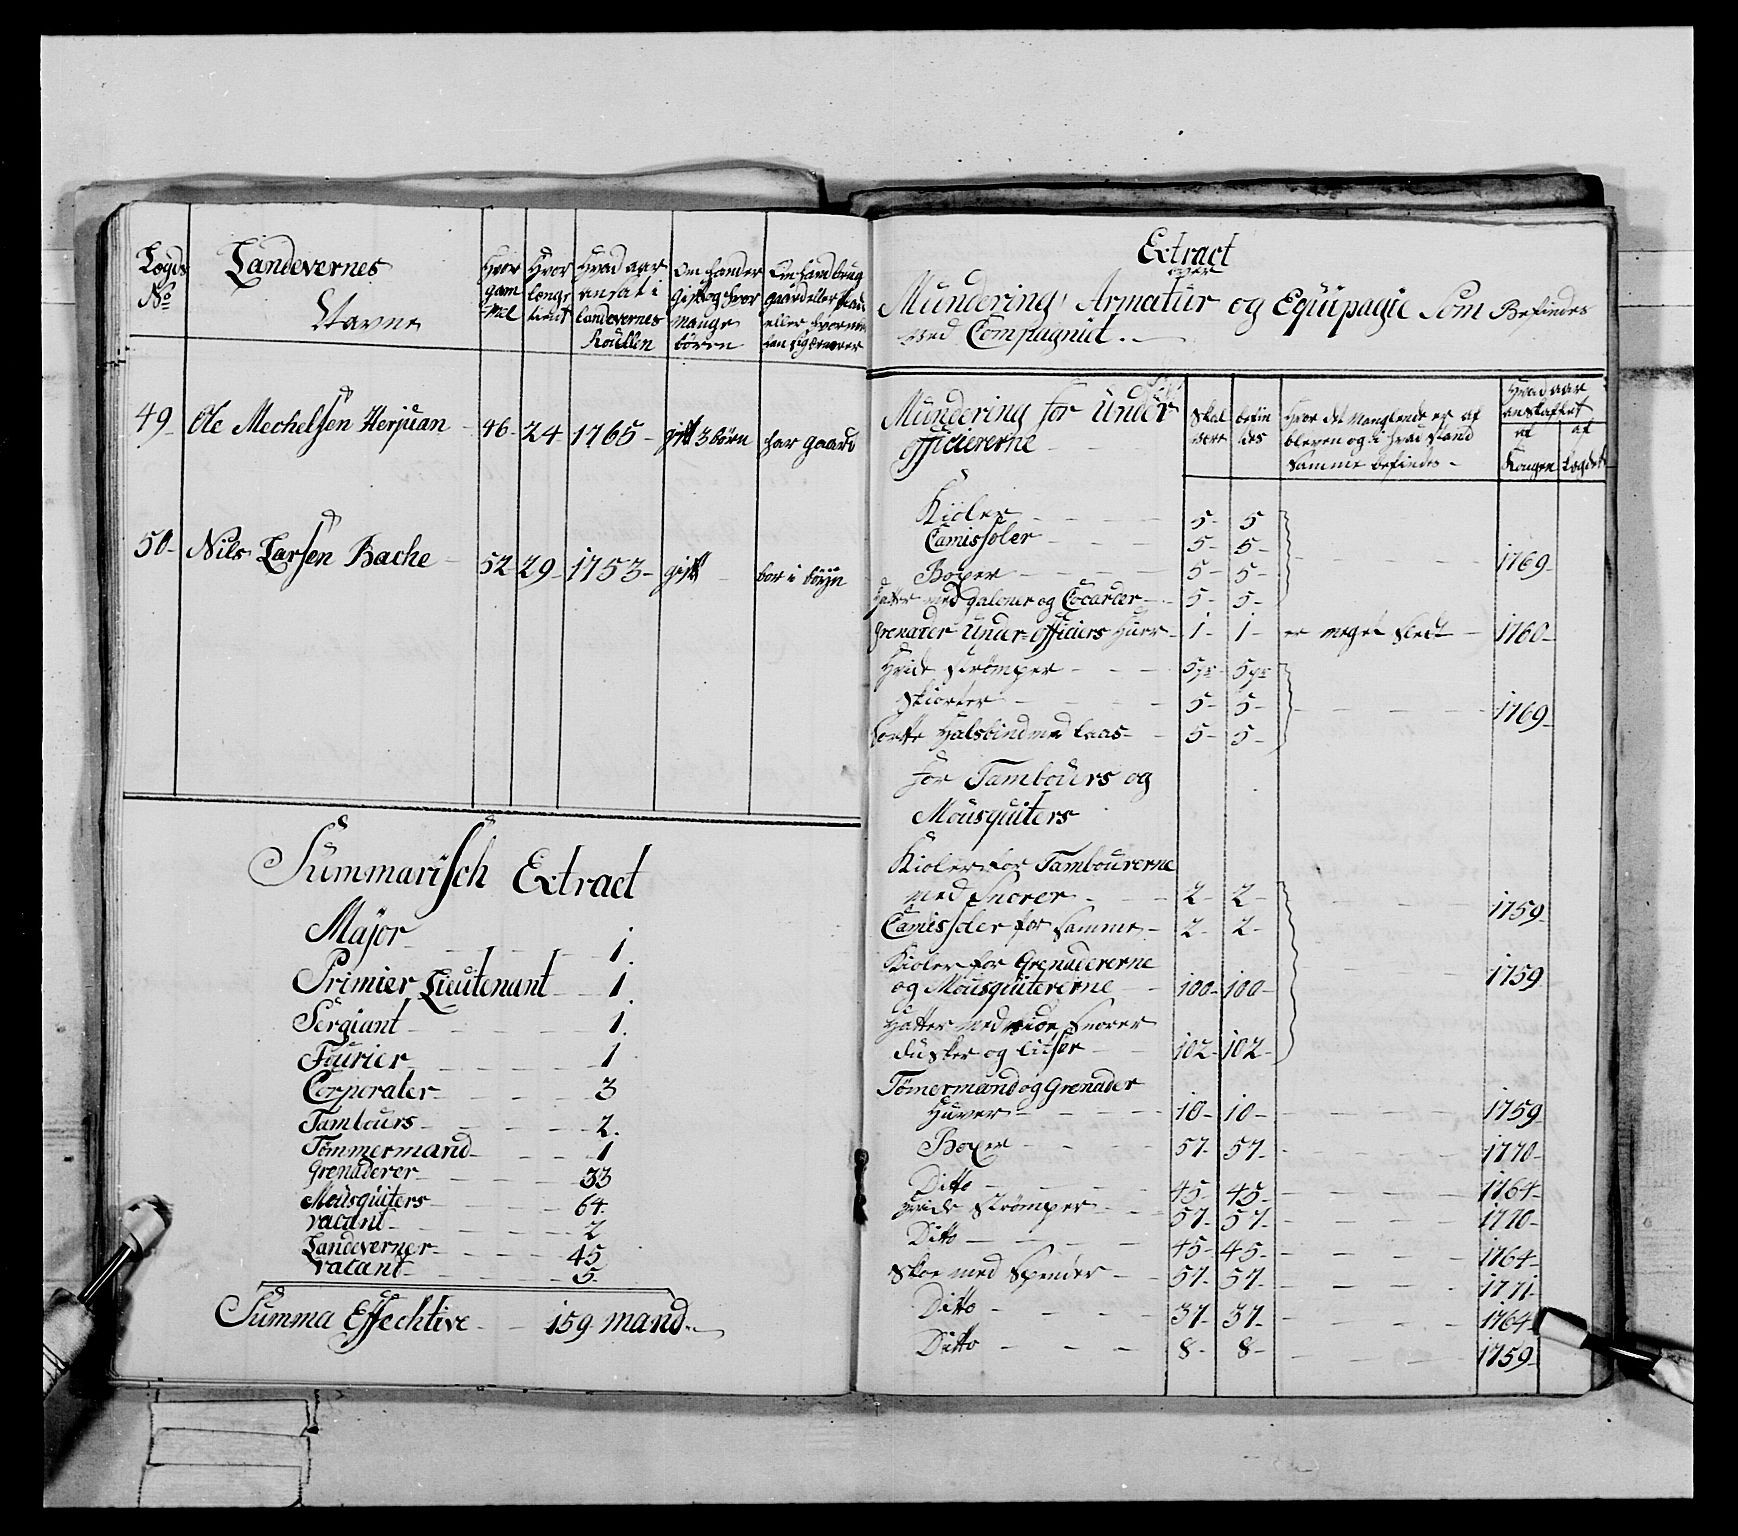 Lægds No
Landevernes Navne
Hvor gammel
Hvor længe tient
Hvad aar ansat i Landevernes Roullen
Om hand er gift og hvor mange børen
49 Ole Mechelsen Herjuan 46 24 1765 gift 3 børn har gaard
50 Nils Larsen Bache 52 29 1753 gift bor i
Summarisch Extract
Major 1
Primier Lieutenant 1
Sergiant 1
Fourier 1
Corporaler 3
Tambours 2
Tømmermand 1
Grenaderer 33
Mousquiters 64
vacant 2
Landeverner 45
vacant 5
Summa Effechtive 159 mand
Extract
over
Mundering, Armatur og Equipagie som Befindes
ved Compagniet.
Mundering for Under officiererne
Skal være
befindes
Hvor det Manglende er af bleven og i hvad stand Samme befindes
Hvad aar anskaffet
af Kongen
af Lægdet
Kioler 5 5
Camissoler 5 5
Boxer 5 5 1769
Hatte med galoner og Cocarder 5 5
Grenader Under officiers Huer 1 1 er meget slet 1760
Hvide Strømper 5 pr 5 pr
Skiorter 5 5 1769
Sorte Halsbind med Laas 5 5
for Tambours og
Mousquiters
Kioler for Tambourerne
med Snorer 2 2 1759
Camissoler for Samme 2 2
Kioler for Grenadererne
og Mousquitererne 100 100 1759
Hatter med Snorer
dusker og litser 102 102
Tømermand og Grenader
Huver 10 10 1759
Boxer 57 57 1770
Ditto 45 45 1764
Hvide Strømper 57 57 1770
Ditto 45 45 1764
Skoe med Spender 57 57 1771
Ditto 37 37 1764
Ditto 8 8 1759